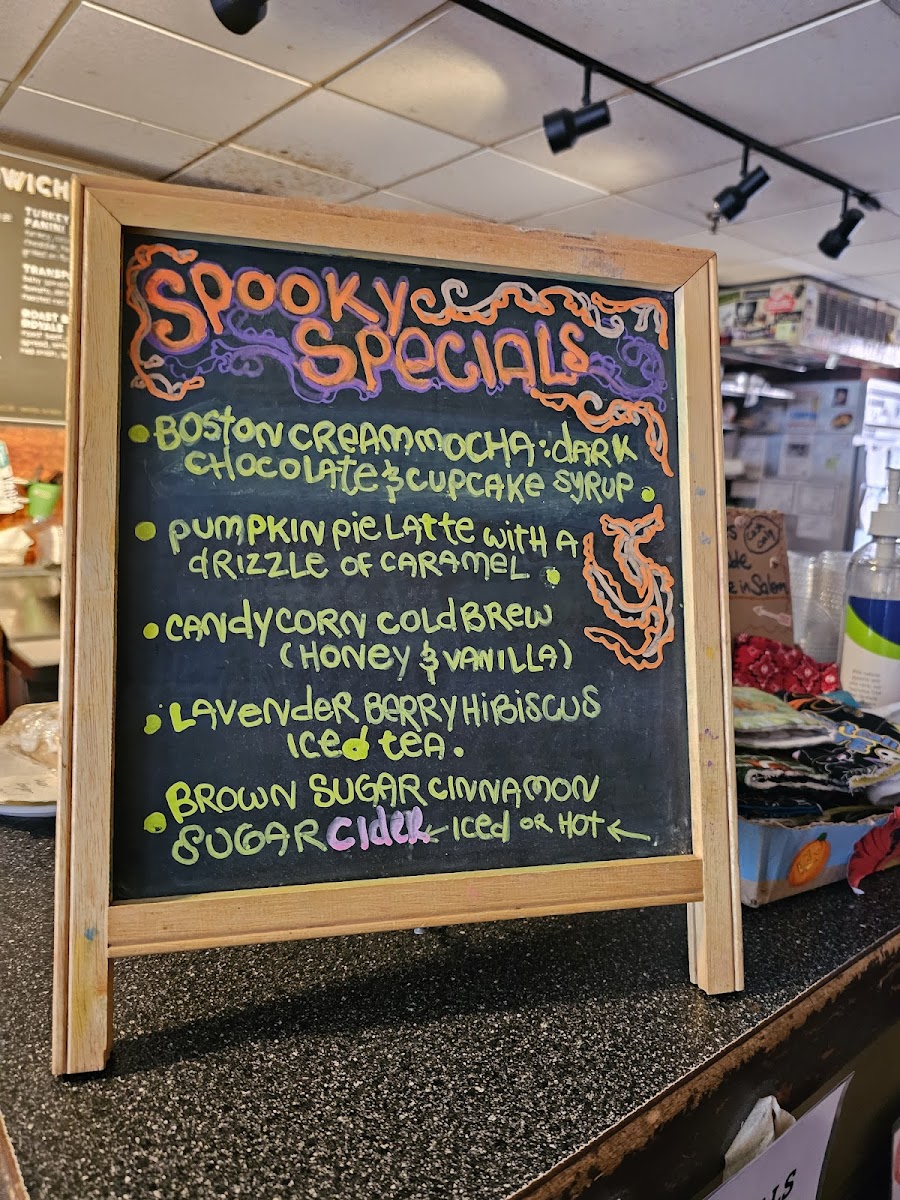 WICH
TURKEY
PANINI
TRANSPO
ROAST B
ROYALE
SPOOKY
SPECIALS
• BOSTON CREAM MOCHA: dARK
CHOCOLATE & CUPCAKE SYRUP.
• PUMPKIN PIE LATTE WITH A
dRIZZLE OF CARAMEL.
• CANDYCORN COLD BREW
(HONEY & VANILLA)
• LAVENDER BERRY HIBISCUS
ICED TEA.
• BROWN SUGAR CINNAMON
SUGAR CIDER ← ICED OR HOT ←
in Salem
LS